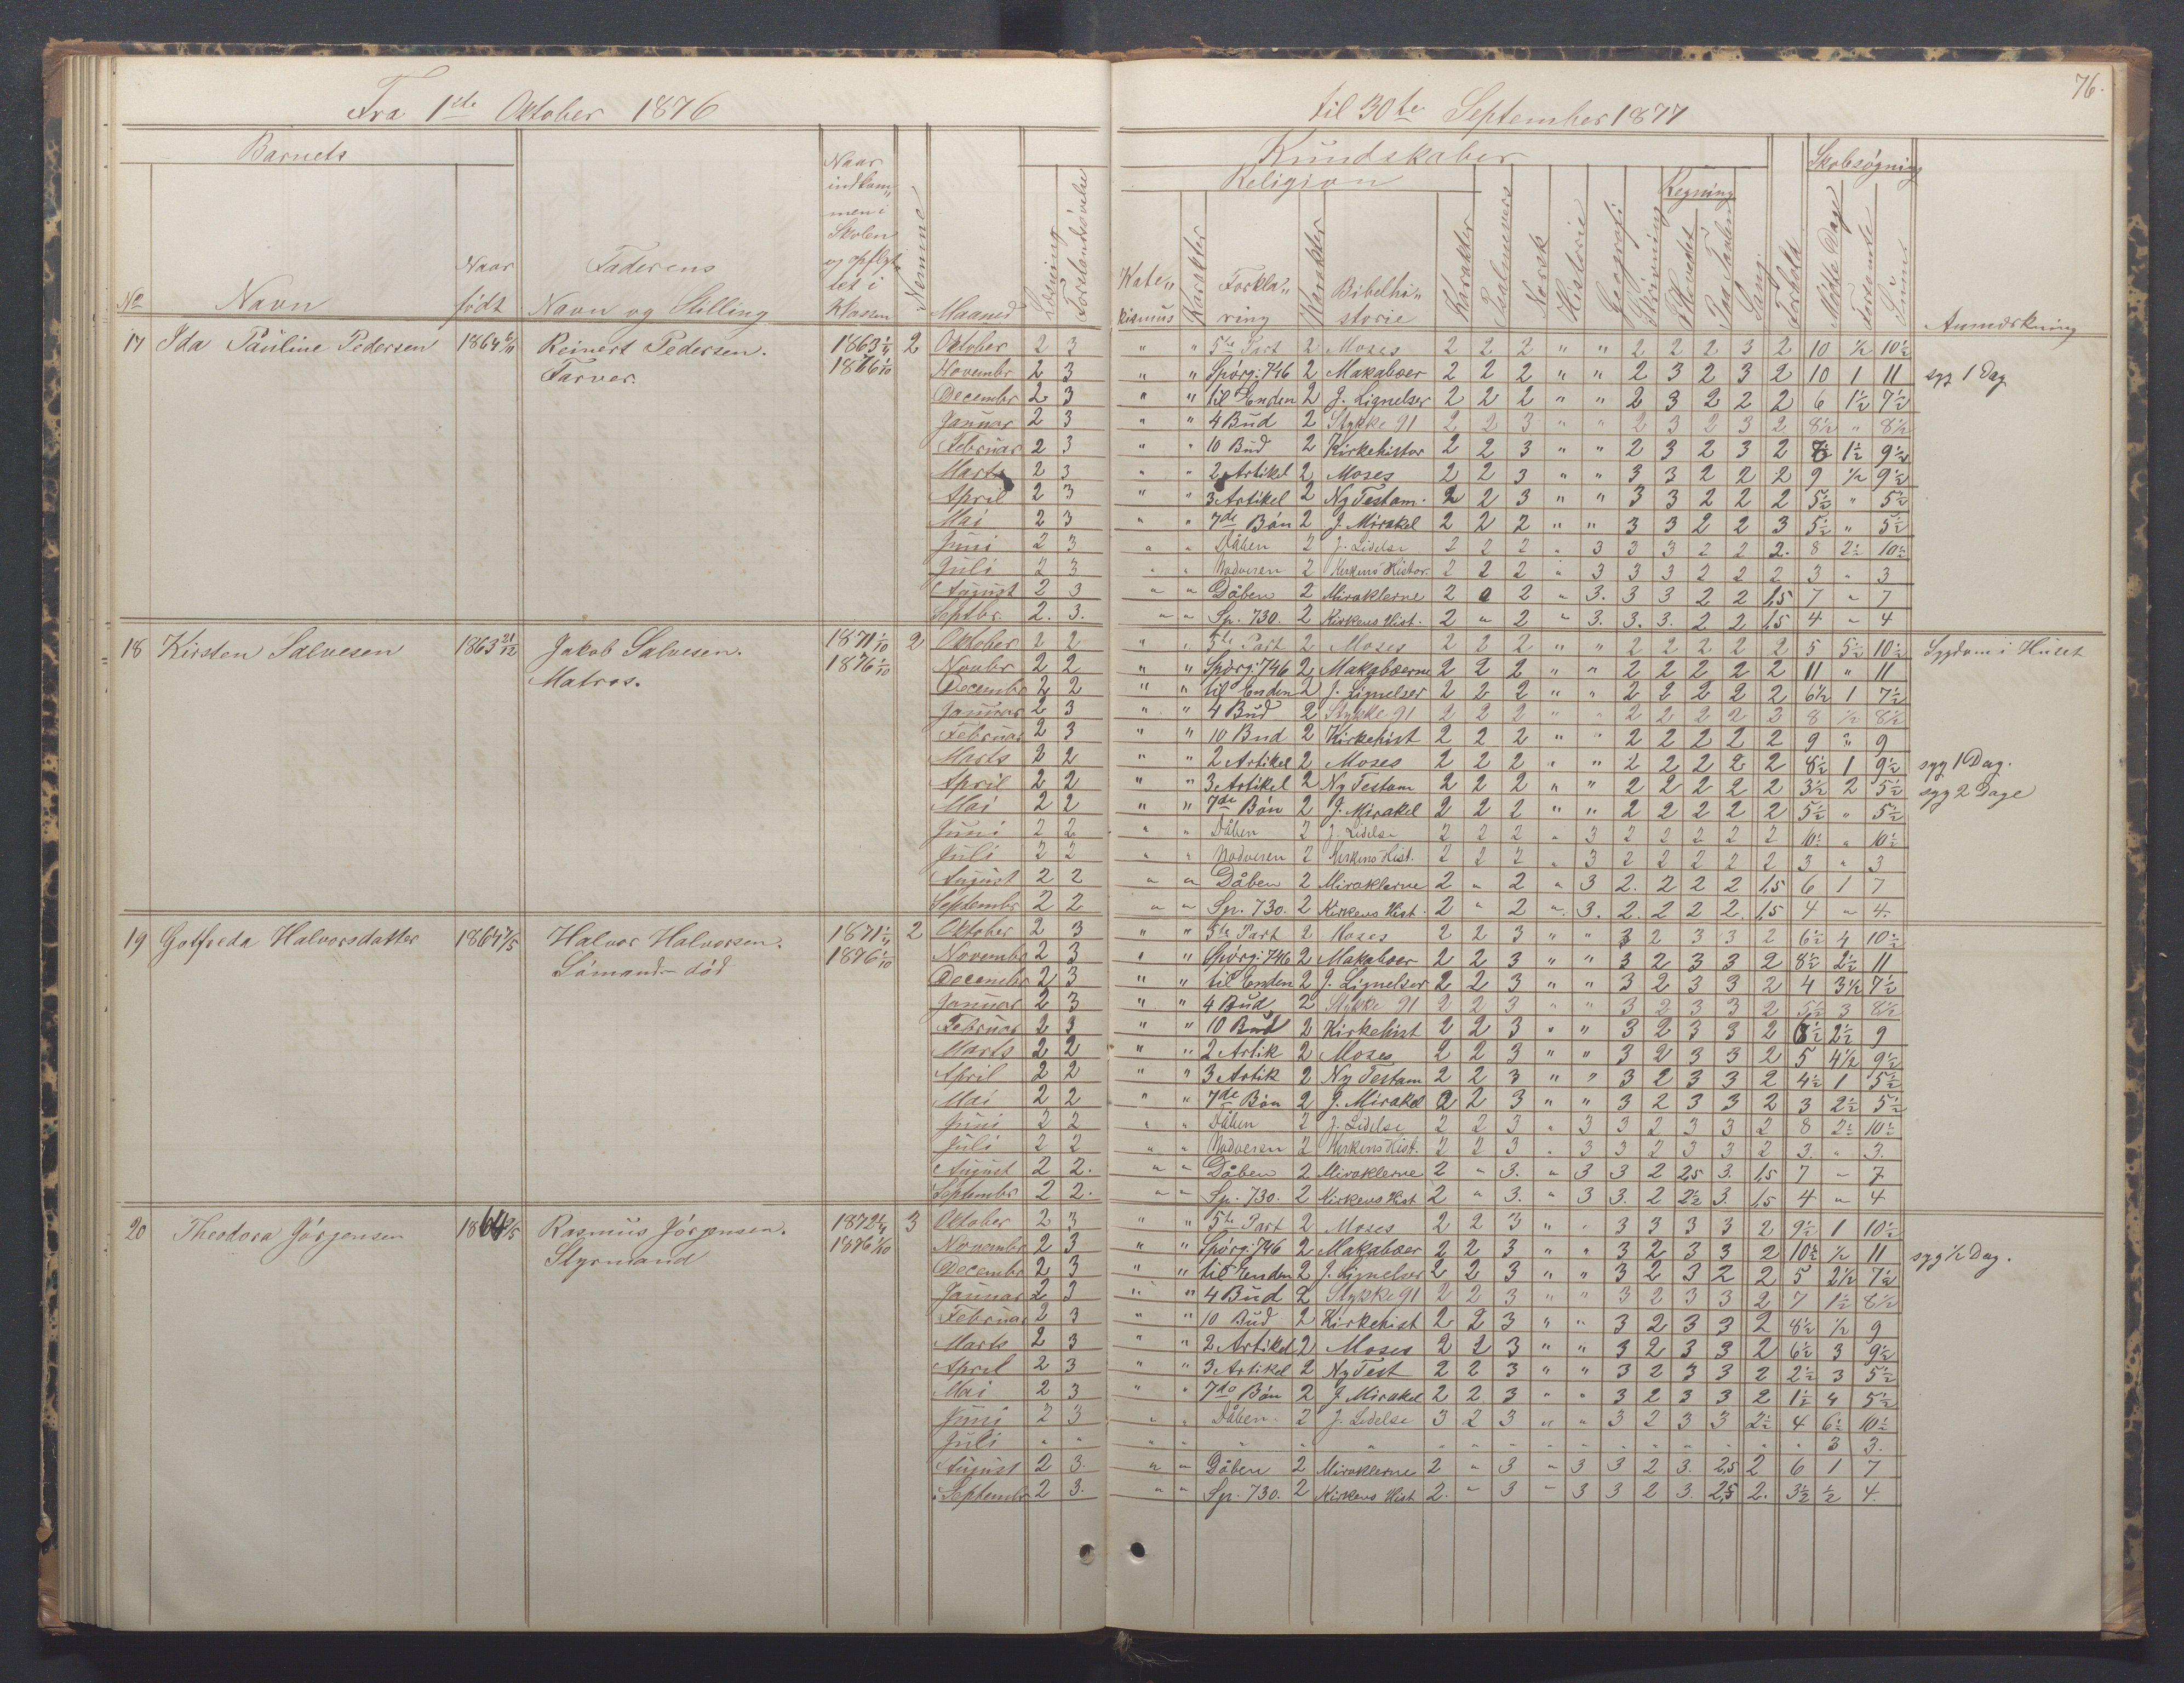 76.
Fra 1ste Oktober 1876 til 30te September 1877
Barnets Kundskaber Skolesøgning
Religion Regning
No Navn Naar født Faderens Navn og Stilling Naar indkommen i Skolen og opflyttet i Klassen Nemme Maaned Læsning Forstandsøvelse Katekismus Karakter Forklaring Karakter Bibelhistorie Karakter Psalmevers Norsk Historie Geografi Skrivning I Hovedet Paa Tavlen Sang Forhold Mødte Dage Forsømte Sum Anmærkning
17 Ida Pauline Pedersen 1864 6/11 Reinert Pedersen. 1863 1/4 2 Oktober 2 3 " " 5te Part 2 Moses 2 2 2 " " 2 2 2 3 2 10 1/2 10 1/2
Farver. 1876 1/10 Novembr 2 3 " " Spørg: 746 2 Makabæer 2 2 2 " " 2 3 2 3 2 10 1 11 syg 1 Dag
Decembr 2 3 " " til Enden 2 J. Lignelser 2 2 2 " " 2 3 2 2 2 6 1 1/2 7 1/2
Januar 2 3 " " 4 Bud 2 Stykke 91 2 2 3 " " 2 3 2 3 2 8 1/2 " 8 1/2
Februar 2 3 " " 10 Bud 2 Kirkehistor 2 2 3 " " 2 3 2 3 2 1 1/2 9 1/2
Marts 2 3 " " 2 Artikel 2 Moses 2 2 3 " " 3 3 2 2 2 9 1/2 9 1/2
April 2 3 " " 3 Artikel 2 Ny Testam. 2 2 3 " " 3 3 2 2 2 5 1/2 " 5 1/2
Mai 2 3 " " 7de Bøn 2 J. Mirakel 2 2 2 " " 3 3 2 2 3 5 1/2 " 5 1/2
Juni 2 3 " " Dåben 2 J. Lidelse 2 2 2 " 3 3 3 2 2 2. 8 2 1/2 10 1/2
Juli 2 3 " " Nadveren 2 Kirkens Histor. 2 2 2 " 3 3 3 2 2 2 3 " 3
August 2 3 " " Dåben 2 Miraklerne 2 2 " 3. 3 3 2 2 1,5 7 " 7
Septbr. 2. 3. " " Sp. 730. 2 Kirkens Hist. 2 " 2 " 3. 3. 3. 2 2 1,5 4 " 4
18 Kirsten Salvesen 1863 21/12 Jakob Salvesen. 1871 1/10 2 Oktober 2 2 " " 5te Part 2 Moses 2 2 2 " " 2 2 2 2 2 5 5 1/2 10 1/2 Sygdom i Huset
Matros. 1876 1/10 Novbr 2 2 " " Spørg: 746 2 Makabæerne 2 2 2 " " 2 2 2 2 2 11 " 11
Decembr 2 2 " " til Enden 2 J. Lignelser 2 2 2 " " 2 2 2 2 2 6 1/2 1 7 1/2
Januar 2 3 " " 4 Bud 2 Stykke 91 2 2 2 " " 2 2 2 2 3 8 1/2 8 1/2
Februar 2 3 " " 10 Bud 2 Kirkehist 2 2 2 " " 2 2 2 2 2 9 " 9
Marts 2 2 " " 2 Artikel 2 Moses 2 2 2 " " 2 2 2 2 2 8 1/2 1 9 1/2 syg 1 Dag.
April 2 2 " " 3 Artikel 2 Ny Testam 2 2 2 " " 2 2 2 2 2 3 1/2 2 5 1/2 syg 2 Dage
Mai 2 2 " " 7de Bøn 2 J. Mirakel 2 2 2 " " 2 2 2 2 2 5 1/2 " 5 1/2
Juni 2 2 " " Dåben 2 J. Lidelse 2 2 2 " 3 2 2 2 2 2 10 1/2 " 10 1/2
Juli 2 2 " " Nadveren 2 Kirkens Hist. 2 2 2 " 3 2 2 2 2 2 3 " 3
August 2 2 " " Dåben 2 Miraklerne 2 " 2 " 3 2. 2 2 2 1,5 6 1 7
Septembr 2 2 " " Sp. 730. 2 Kirkens Hist. 2 " 2 " 3. 2. 2 2 2. 1,5 4 " 4.
19 Gotfreda Halvorsdatter 1864 7/5 Halvor Halvorsen. 1871 1/4 2 Oktober 2 3 " " 5te Part 2 Moses 2 2 3 " " 3 2 3 3 2 6 1/2 4 10 1/2
Sømand død 1876 1/10 Novembr 2 3 " " Spørg: 746 2 Makabæer 2 2 3 " " 3 2 3 3 2 8 1/2 2 1/2 11
Decembr 2 3 " " til Enden 2 J. Lignelser 2 2 3 " " 3 2 3 3 2 4 3 1/2 7 1/2
Januar 2 3 " " 4 Bud 2 Stykke 91 2 2 3 " " 3 2 3 3 2 5 1/2 3 8 1/2
Februar 2 3 " " 10 Bud 2 Kirkehist 2 2 3 " " 3 2 3 3 2 6 1/2 2 1/2 9
Marts 2 2 " " 2 Artik 2 Moses 2 2 3 " " 3 2 3 3 2 5 4 1/2 9 1/2
April 2 2 " " 3 Artik 2 Ny Testam 2 2 3 " " 3 2 3 3 2 4 1/2 1 5 1/2
Mai 2 2 " " 7de Bøn 2 J. Mirakel 2 2 3 " " 3 2 3 3 2 3 2 1/2 5 1/2
Juni 2 2 " " Dåben 2 J. Lidelse 2 2 3 " 3 3 2 3 3 2 8 2 1/2 10 1/2
Juli 2 2 " " Nadveren 2 Kirkens Hist. 2 2 3 " 3 3 2 3 3 2 3. " 3.
August 2 2. " " Dåben 2 Miraklerne 2 " 3. " 3 3 2 2,5 3. 1,5 7 " 7
Septembr 2 2. " " Sp. 730. 2 Kirkens Hist 2 " 3. " 3 3. 2 2 1/2 3. 1,5 4 " 4
20 Theodora Jørgensen 1864 /5 Rasmus Jørgensen. 1872 1/4 3 Oktober 2 3 " " 5te Part 2 Moses 2 2 3 " " 3 3 3 3 2 9 1/2 1 10 1/2
Styrmand 1876 1/10 Novembr 2 3 " " Spørg: 746 2 Makabæer 2 2 3 " " 3 2 3 3 2 10 1/2 1/2 11 syg 1/2 Dag.
Decembr 2 3 " " til Enden 2 J. Lignelser 2 2 3 " " 3 2 3 2 2 5 2 1/2 7 1/2
Januar 2 3 " " 4 Bud 2 Stykke 91 2 2 3 " " 3 2 3 3 2 7 1 1/2 8 1/2
Februar 2 3 " " 10 Bud 2 Kirkehist 2 2 3 " " 3 2 3 3 2 8 1/2 1/2 9
Marts 2 3 " " 2 Artikel 2 Moses 2 2 3 " " 3 2 3 3 2 6 1/2 3 9 1/2
April 2 3 " " 3 Artikel 2 Ny Test 2 2 3 " " 3 2 3 3 2 2 1/2 3 5 1/2
Mai 2 3 " " 7de Bøn 2 J. Mirakel 2 2 3 " " 3 2 3 3 2 1 1/2 4 5 1/2
Juni 2 3 " " Dåben 2 J. Lidelse 3 2 3 " " 3 2 3 3 2 1/2 4 6 1/2 10 1/2
Juli " " " " " " " " " " " " " " " " " " 3 3.
August 2 3. " " Dåben 2 Miraklerne 2 " 3 " 3 3 2 3. 2,5 2 6 1 7
Septembr 2 3. " " Sp. 730. 2 Kirkens Hist 2. " 3 " 3 3 2 3. 2,5 2. 3 1/2 1/2 4.